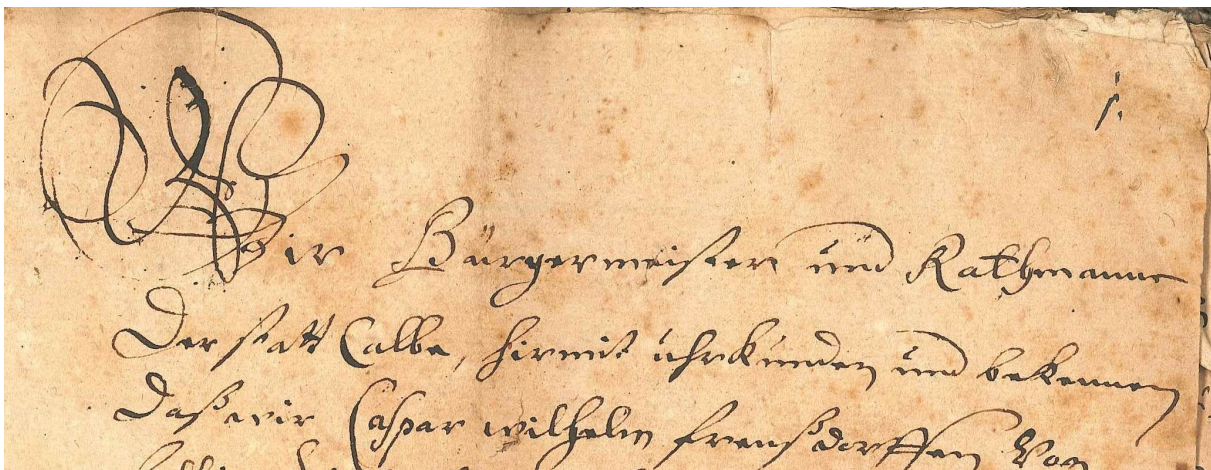 1.
Wir Bürgermeister und Rathmanne
Der statt Calbe, hirmit uhrkunden und bekennen
Daß wir Caspar wilhelm frensdorffen Von